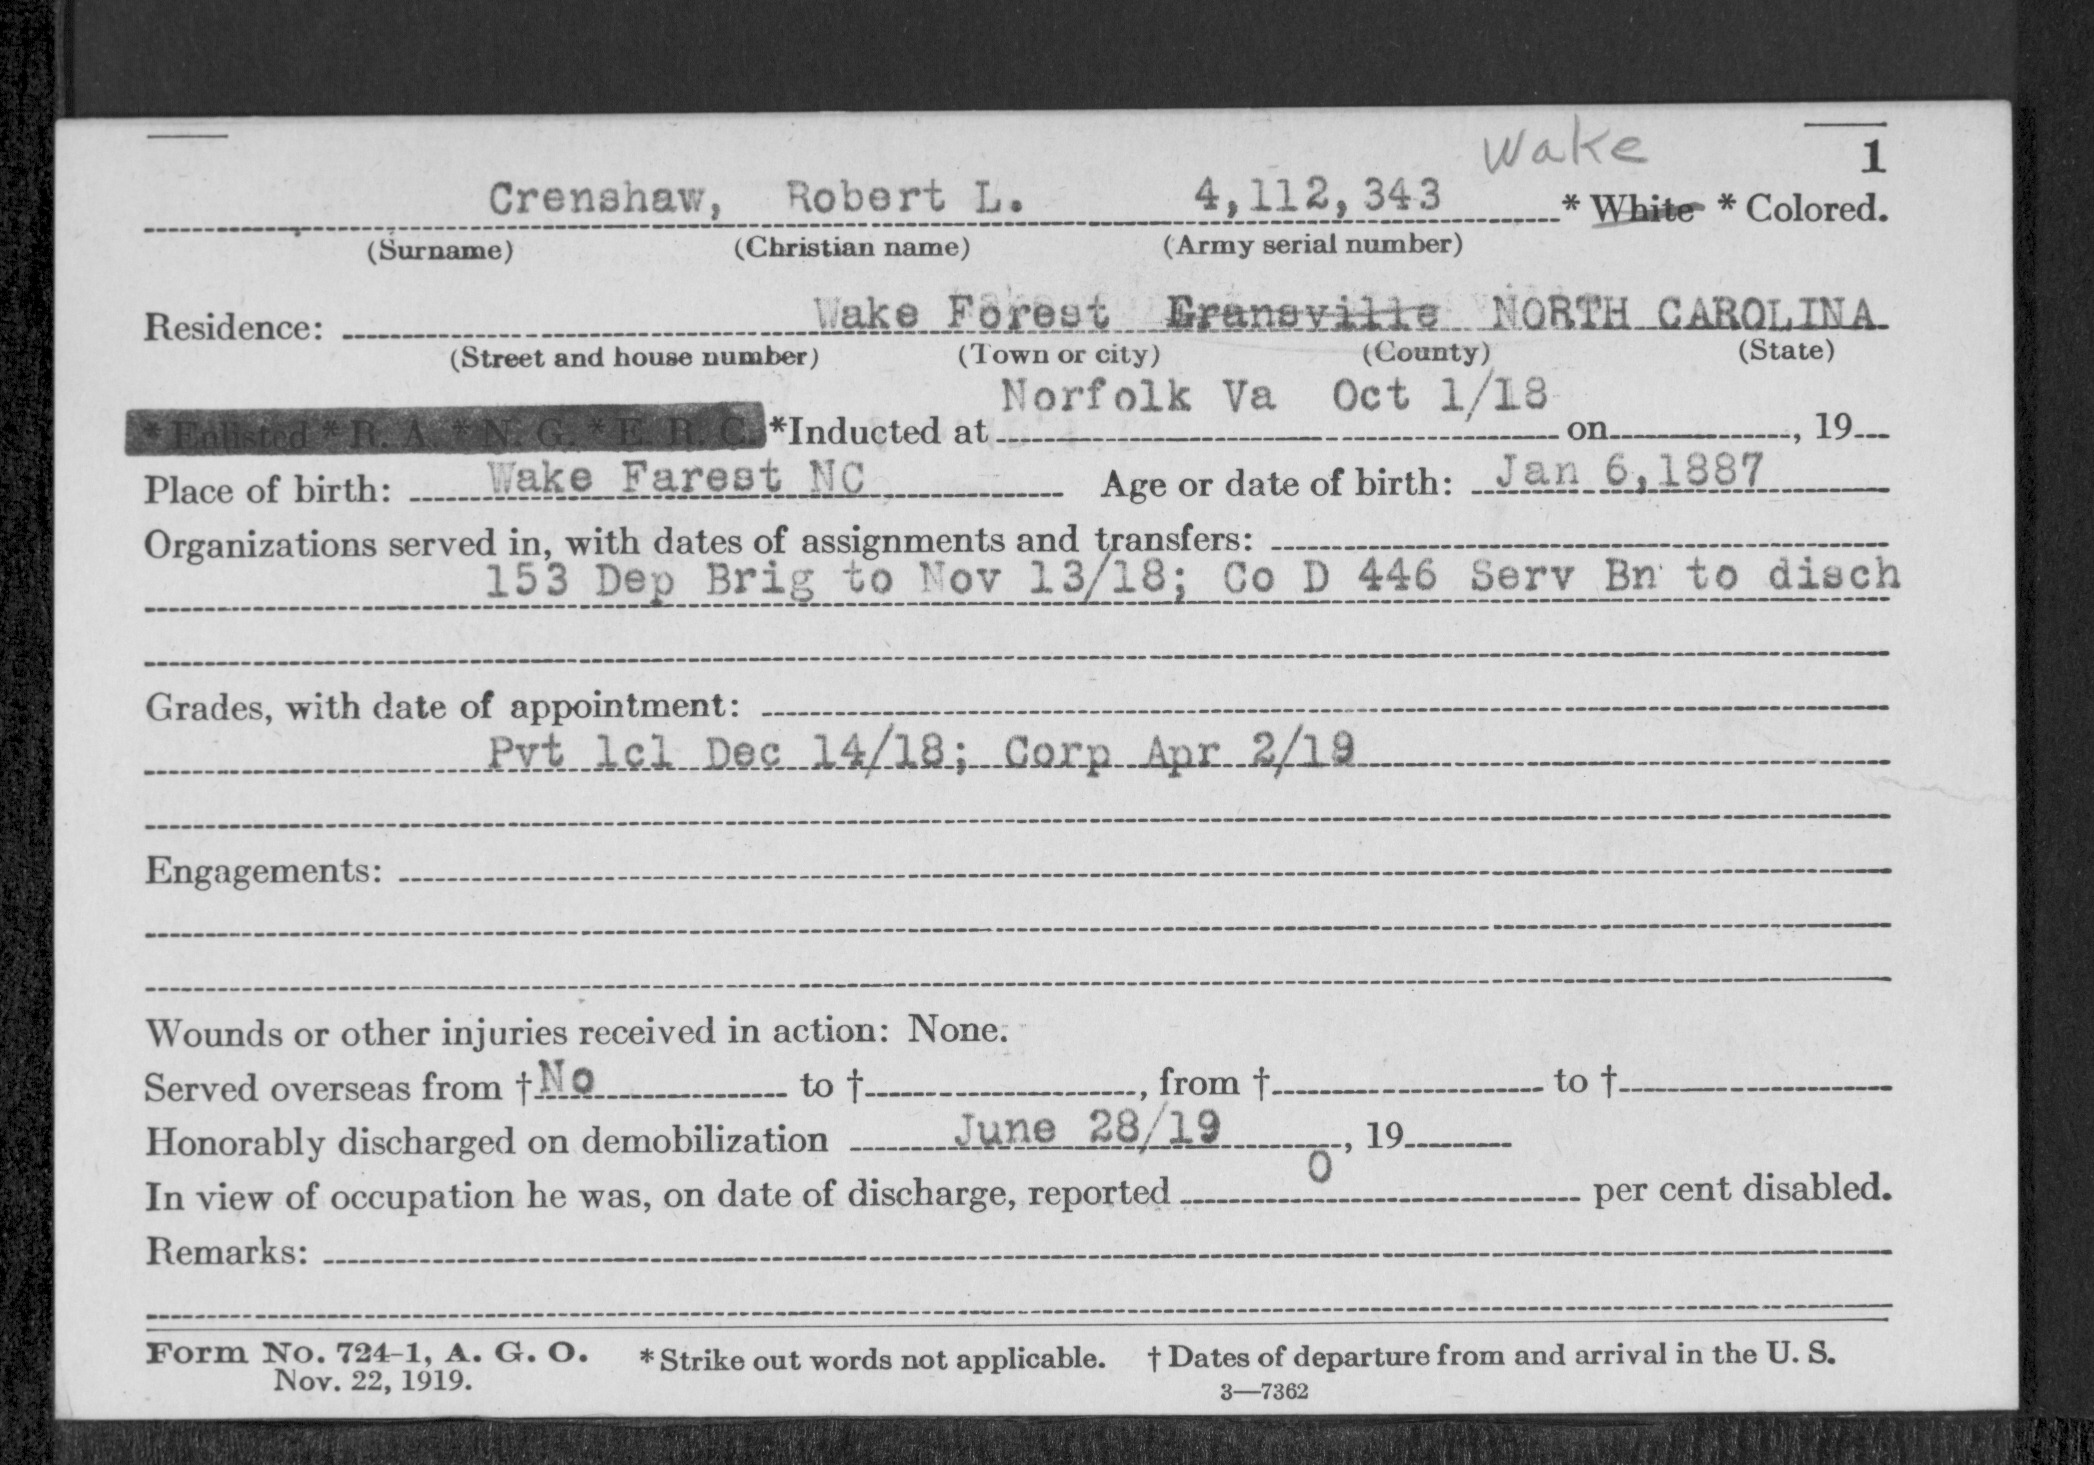 Wake
1
Crenshaw, Robert L. 4,112,343 * White * Colored.
(Surname) (Christian name) (Army serial number)
Residence: Wake Forest Granville NORTH CAROLINA
(Street and house number) (Town or city) (County) (State)
Norfolk Va Oct 1/18
* Enlisted * R. A. * N. G. * E. R. C. *Inducted at on , 19
Place of birth: Wake Farest NC Age or date of birth: Jan 6,1887
Organizations served in, with dates of assignments and transfers:
153 Dep Brig to Nov 13/18; Co D 446 Serv Bn to disch
Grades, with date of appointment:
Pvt 1cl Dec 14/18; Corp Apr 2/19
Engagements:
Wounds or other injuries received in action: None.
Served overseas from † No to † , from † to †
Honorably discharged on demobilization June 28/19 , 19
In view of occupation he was, on date of discharge, reported 0 per cent disabled.
Remarks:
Form No. 724-1, A. G. O. * Strike out words not applicable. † Dates of departure from and arrival in the U. S.
Nov. 22, 1919. 3—7362